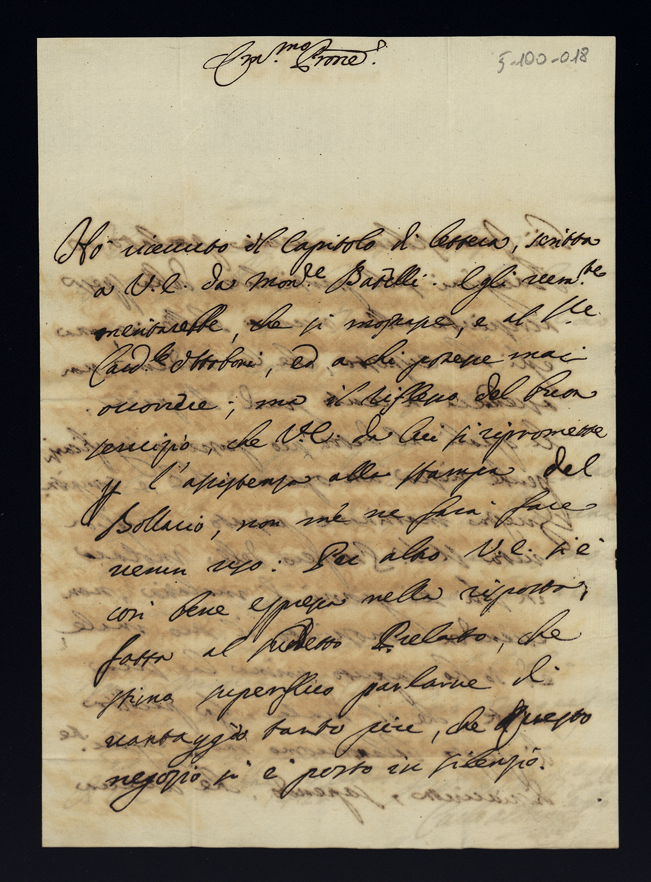 Em.mo Prone.
5-100-018
Ho ricevuto il Capitolo di lettera, scritta
a V.E. da Mons.re Batelli. Egli verm.te
meritarebbe, che si mostrasse, e al S.re
Card.le Ottoboni, ed a chi potesse mai
occorrere; ma il riflesso del buon
servizio che V.E. da lui si ripromette
p l'assistenza alla stampa del
Bollario, non me ne farà fare
verun uso. Per altro V.E. si è
così bene espressa nella risposta,
fatta al sudetto Prelato, che
stimo superfluo parlarne di
vantaggio tanto più, che questo
negozio si è posto in silenzio.